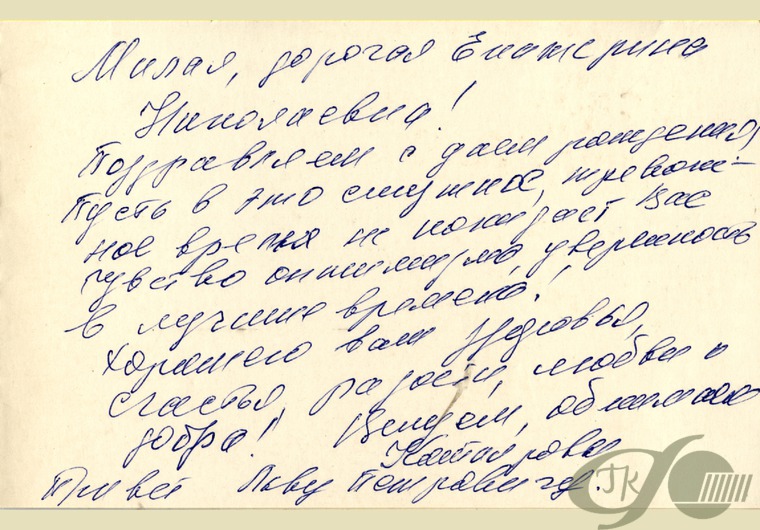 Милая, дорогая Екатерина
Николаевна!
Поздравляем с днем рождения,
Пусть в это смутное, тревож-
ное время не покидает Вас
чувство оптимизма, уверенность
в лучшие времена!
Хорошего вам здоровья,
счастья, радости, любви и
добра! обнимаю
Привет Льву Петровичу!
ГК